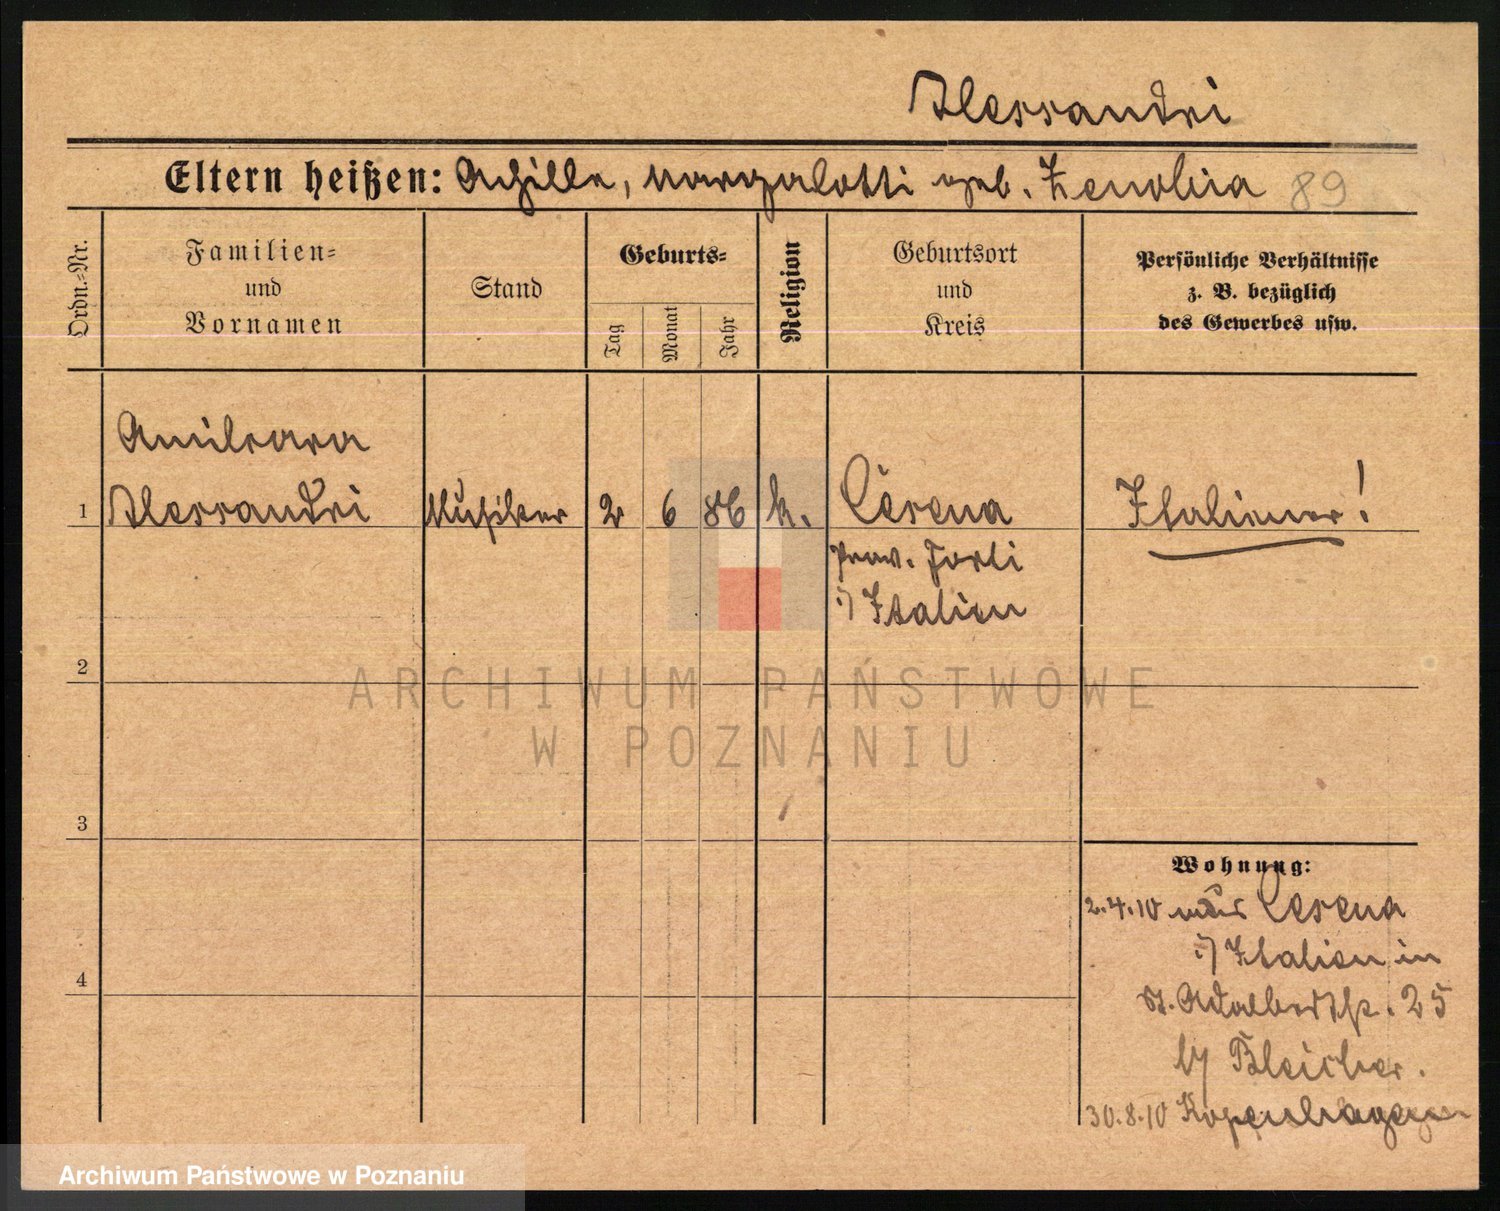 Alessandri
Eltern heißen: Achille, Margalotti geb. Zenobia 89
Ordn.-Nr.
Familien-
und
Vornamen
Stand
Geburts-
Tag
Monat
Jahr
Religion
Geburtsort
und
Kreis
Persönliche Verhältnisse
z. B. bezüglich
des Gewerbes usw.
Amilcara
1 Alessandri Musiker 2 6 86 k. Cesena Italiener!
Prov. Forli
i/ Italien
2
ARCHIWUM PAŃSTWOWE
W POZNANIU
3
Wohnung:
2.4.10 aus Cesena
i/ Italien in
4
St. Adalbertstr. 25
b/ Bleicher.
30.8.10 Kopenhagen
Archiwum Państwowe w Poznaniu